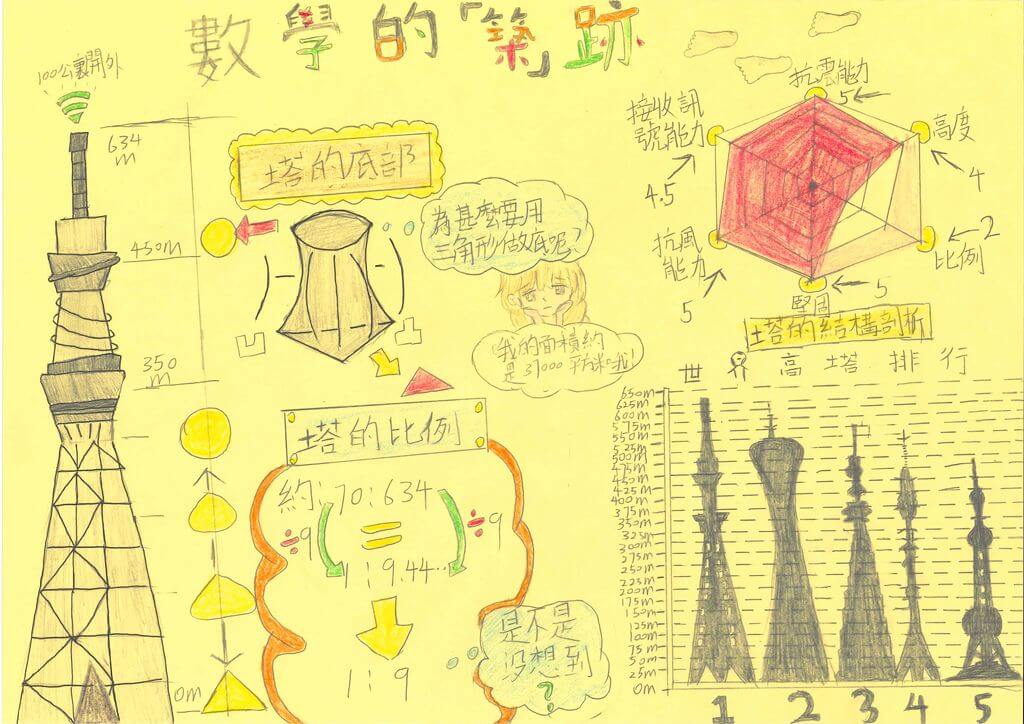 數學的「築」跡
100公裏開外
634
m
450m
350
m
0m
塔的底部
為甚麼要用
三角形做底呢?
凹
凸
我的面積約
是
平方米哦!
塔的比例
約:70:634
÷9 = ÷9
1:9.44…
1:9
是不是
沒想到
?
抗震能力
5
高度
4
2
比例
5
堅固
抗風
能力
5
接收訊
號能力
4.5
塔的結構剖析
世界高塔排行
650m
625m
600m
575m
550m
525m
500m
475m
450m
425m
400m
375m
350m
325m
300m
275m
250m
225m
200m
175m
150m
125m
100m
75m
50m
25m
0m
1 2 3 4 5